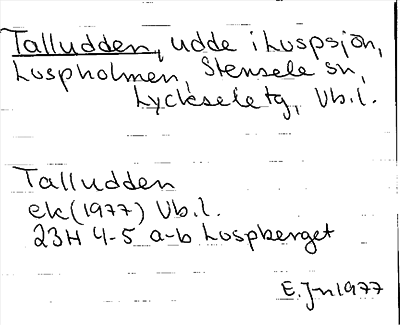 Talludden, udde i Luspsjön,
Luspholmen, Stensele sn,
Lycksele tg, Vb.l.
Talludden
ek (1977) Vb.l.
23H 4-5 a-b Luspberget
E. Jn 1977